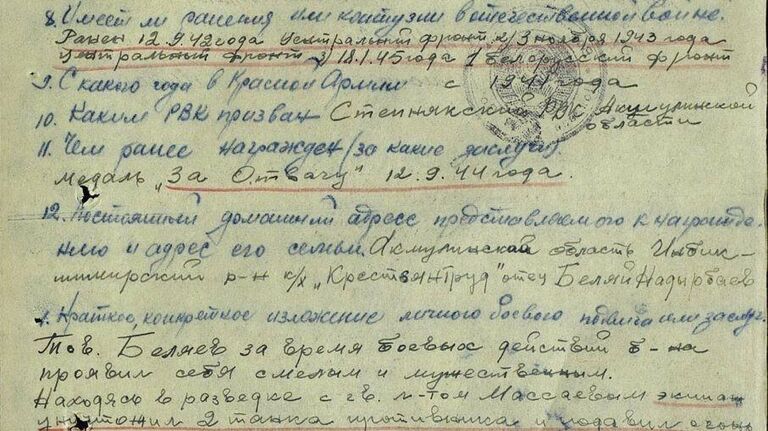 8. Имеет ли ранения или контузии в отечественной войне.
Ранен 12.9.42 года Центральный фронт, 3 ноября 1943 года
Центральный фронт, 18.1.45 года 1 Белорусский фронт
9. С какого года в Красной Армии с года
10. Каким РВК призван Степнякским РВК Акмулинской
области
11. Чем ранее награжден (за какие заслуги)
медаль „За Отвагу" 12.9.44 года.
12. Постоянный домашний адресс представляемого к награжде-
нию и адрес его семьи. Акмулинская область
р-н к/х „Крестьян Труд" отец Беляй Надырбаев
Краткое, конкретное изложение личного боевого подвига или заслуг.
Тов. Беляев за время боевых действий б-на
проявил себя смелым и мужественным.
Находясь в разведке с гв. л-том Массаевым экипаж
уничтожил 2 танка противника и подавил огонь